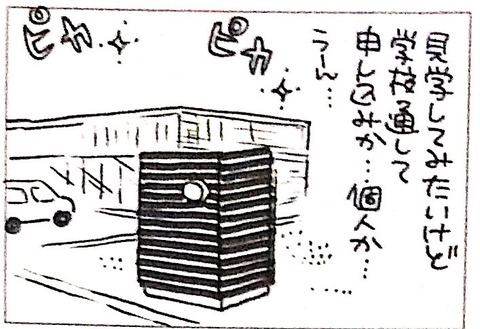 見学してみたいけど
学校通して
申し込みか…個人か…
うーん…
ピカ
ピカ